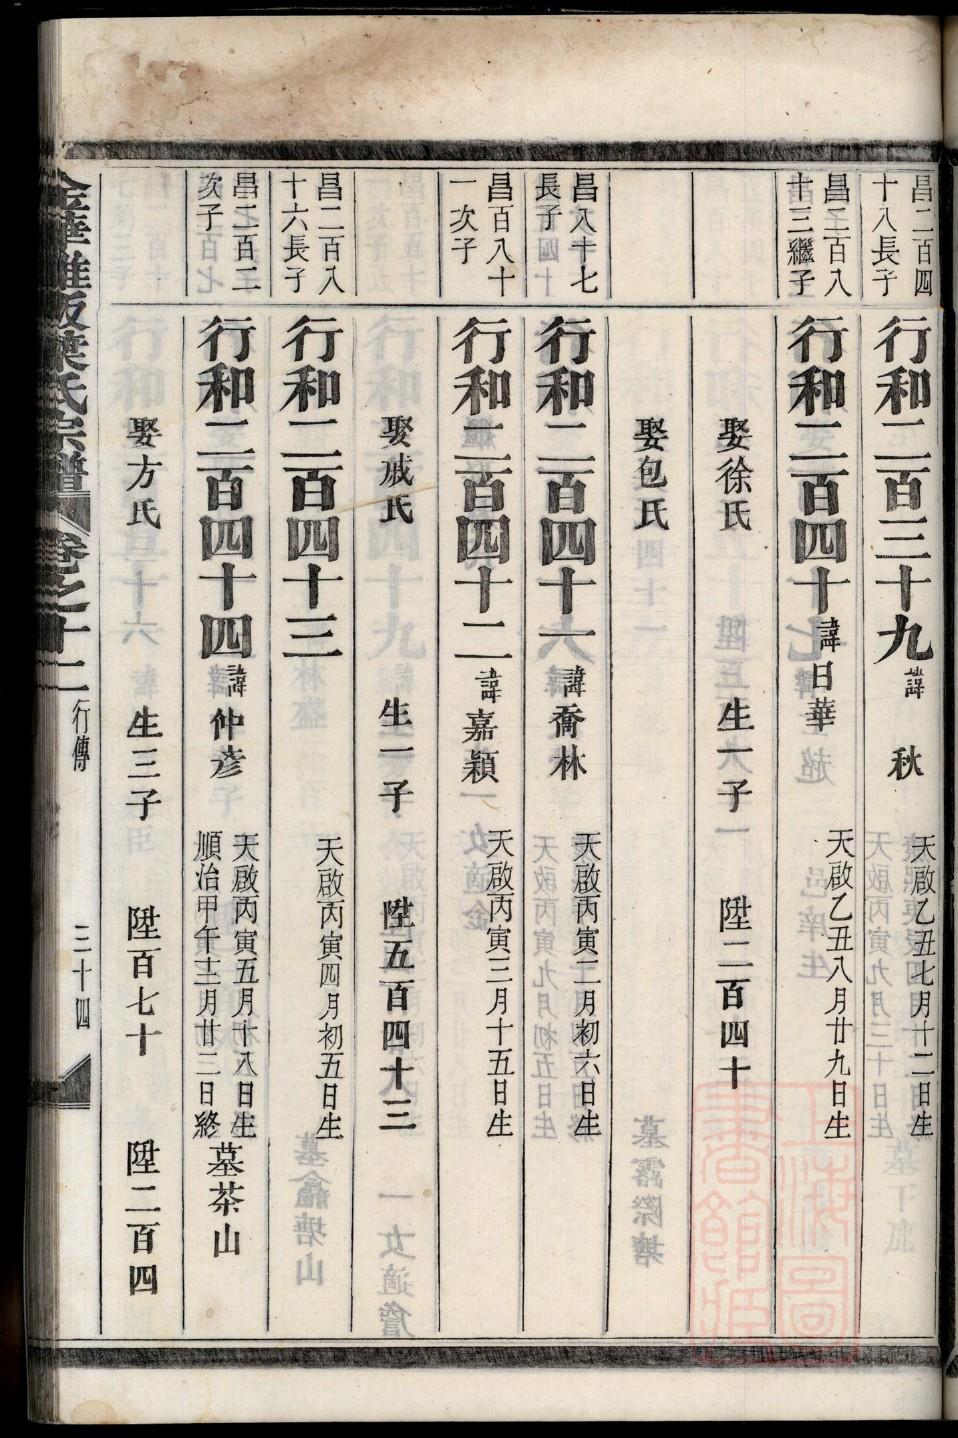 昌二百四
十八長子
行和二百三十九 諱 秋 天啟乙丑七月十二日生
昌二百八
十三繼子
行和二百四十 諱日華 天啟乙丑八月廿九日生
娶徐氏 生一子 陞二百四十
娶包氏
昌八十七
長子
行和二百四十一 諱喬林 天啟丙寅二月初六日生
昌百八十
一次子
行和二百四十二 諱嘉穎 天啟丙寅三月十五日生
娶戚氏 生一子 陞五百四十三
昌二百八
十六長子
行和二百四十三 天啟丙寅四月初五日生
昌二百二
次子
行和二百四十四 諱仲彥 天啟丙寅五月廿八日生
順治甲午十二月廿三日終 墓茶山
娶方氏 生三子 陞百七十 陞二百四
金華 版葉氏宗譜 卷之十二 行傳 三十四
上海圖書館藏